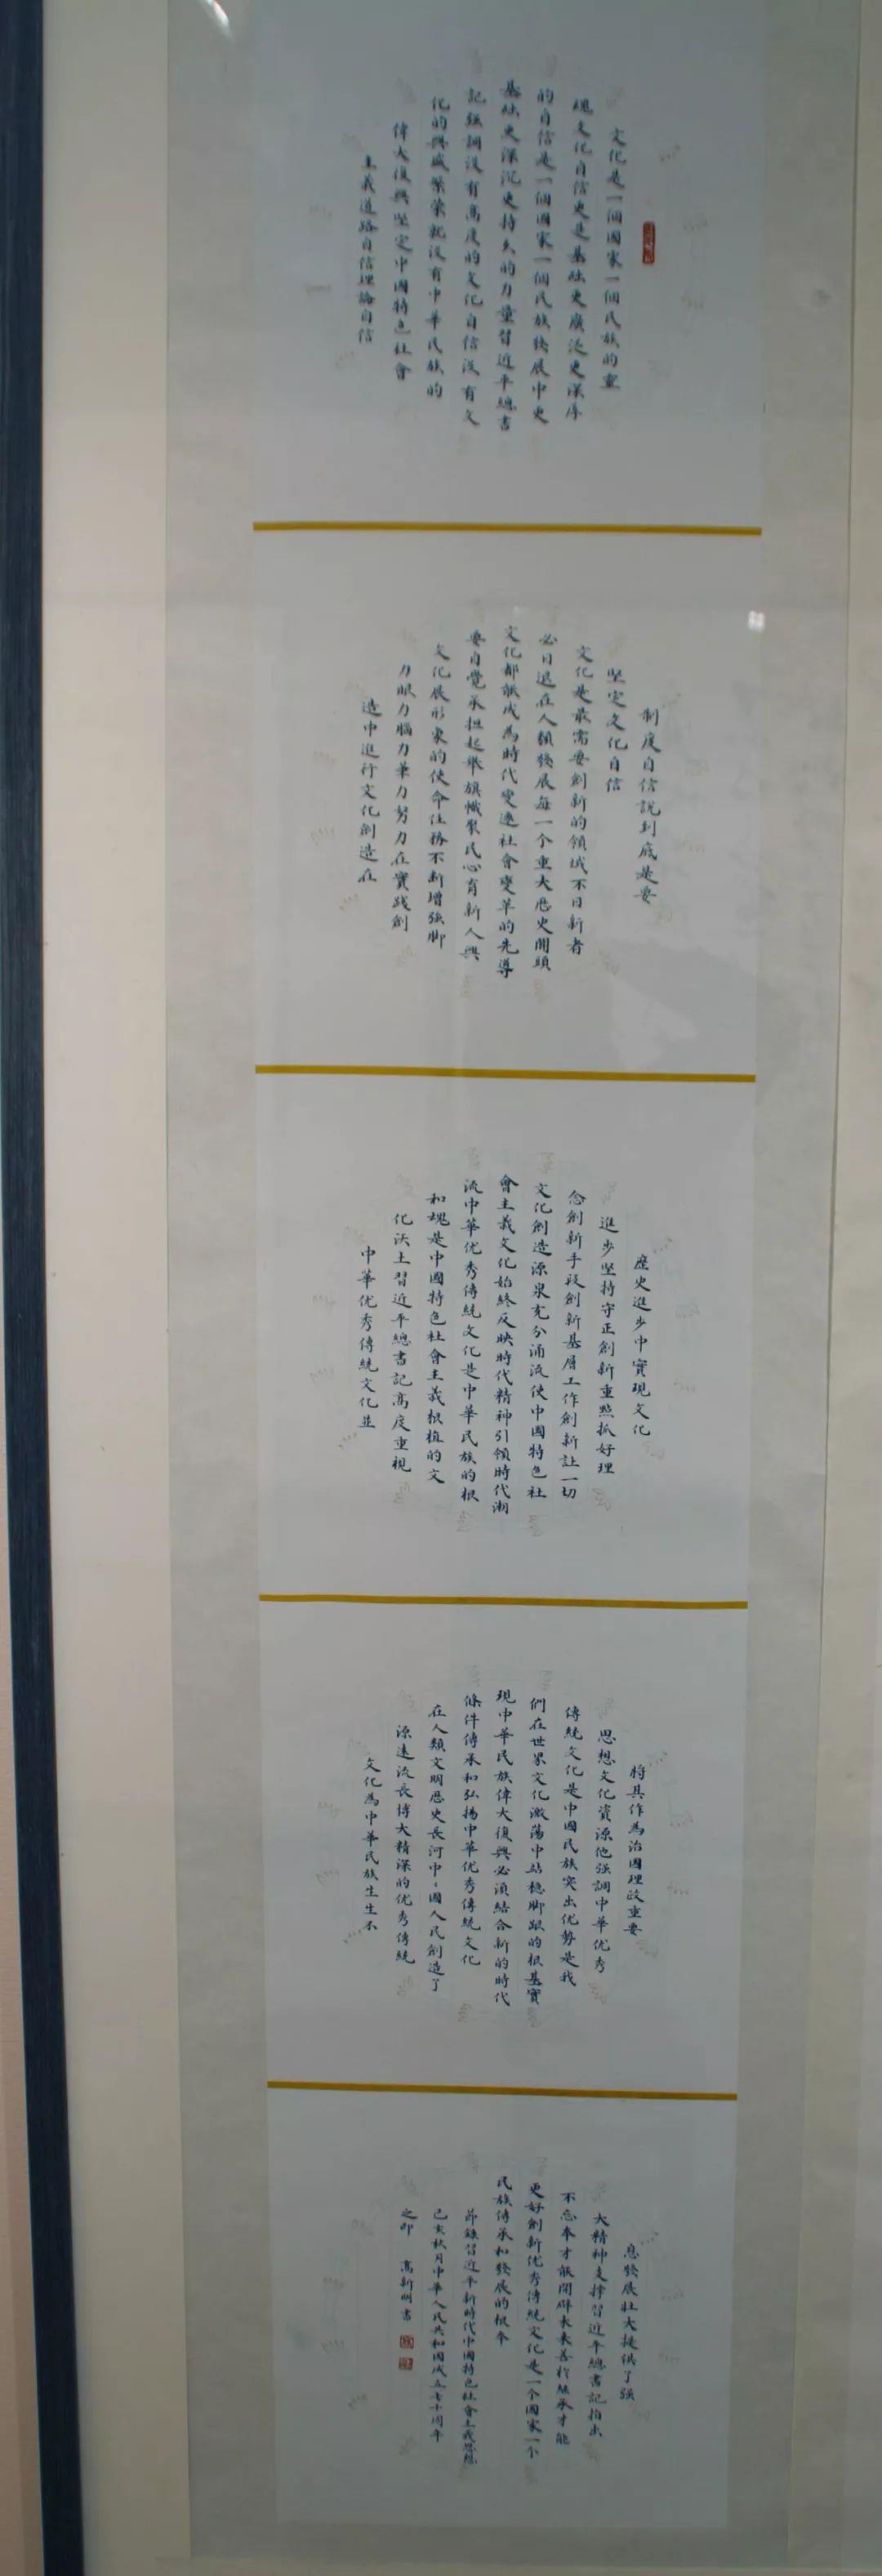 文化是一個國家一個民族的靈
魂文化自信更是基础更廣泛更深厚
的自信是一個國家一個民族發展中更
基础更深沉更持久的力量習近平總書
記强調没有高度的文化自信没有文
化的興盛繁荣就没有中華民族的
偉大復興坚定中國特色社會
主義道路自信理論自信
制度自信説到底是要
坚定文化自信
文化是最需要創新的領域不日新者
必日退在人類發展每一个重大歷史關頭
文化都能成為時代變遷社會變革的先導
要自覺承担起舉旗幟聚民心育新人興
文化展形象的使命任務不斷增强脚
力眼力腦力筆力努力在實践創
造中進行文化創造在
歷史進步中實現文化
進步坚持守正創新重點抓好理
念創新手段創新基層工作創新让一切
文化創造源泉充分涌流使中國特色社
會主義文化始終反映時代精神引領時代潮
流中華优秀傳統文化是中華民族的根
和魂是中國特色社會主義根植的文
化沃土習近平總書記高度重視
中華优秀傳統文化並
將其作為治國理政重要
思想文化資源他强調中華优秀
傳統文化是中國民族突出优勢是我
們在世界文化激荡中站穩脚跟的根基實
現中華民族偉大復興必須結合新的時代
條件傳承和弘揚中華优秀傳統文化
在人類文明歷史長河中﹕國人民創造了
源遠流長博大精深的优秀傳統
文化為中華民族生生不
息發展壮大提供了强
大精神支撑習近平總書記指出
不忘本才能開辟未來善於继承才能
更好創新优秀傳統文化是一个國家一个
民族傳承和發展的根本
節録習近平新時代中國特色社會主義思想
己亥秋月中華人民共和國成立七十周年
之即 高新明書